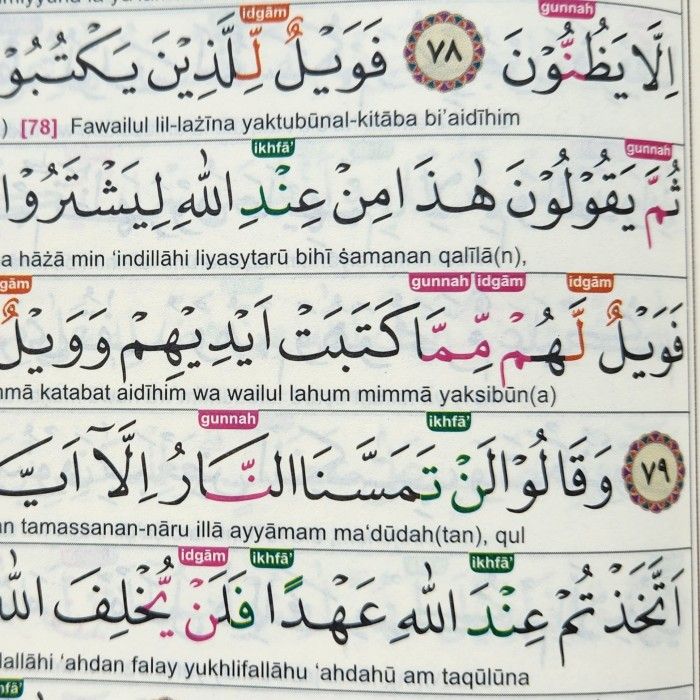 idgām gunnah
اِلَّا يَظُنُّوْنَ ٧٨ فَوَيْلٌ لِّلَّذِيْنَ يَكْتُبُو
) [78] Fawailul lil-lażīna yaktubūnal-kitāba bi’aidīhim
ikhfā’ gunnah
ثُمَّ يَقُوْلُوْنَ هٰذَا مِنْ عِنْدِ اللّٰهِ لِيَشْتَرُوْا
a hāżā min ‘indillāhi liyasytarū bihī ṡamanan qalīlā(n),
gām gunnah idgām idgām
فَوَيْلٌ لَّهُمْ مِّمَّا كَتَبَتْ اَيْدِيْهِمْ وَوَيْلٌ
mā katabat aidīhim wa wailul lahum mimmā yaksibūn(a)
gunnah ikhfā’
٧٩ وَقَالُوْا لَنْ تَمَسَّنَا النَّارُ اِلَّآ اَيَّ
n tamassanan-nāru illā ayyāmam ma‘dūdah(tan), qul
idgām ikhfā’ ikhfā’
اَتَّخَذْتُمْ عِنْدَ اللّٰهِ عَهْدًا فَلَنْ يُّخْلِفَ اللّٰ
dallāhi ‘ahdan falay yukhlifallāhu ‘ahdahū am taqūlūna
hfā’